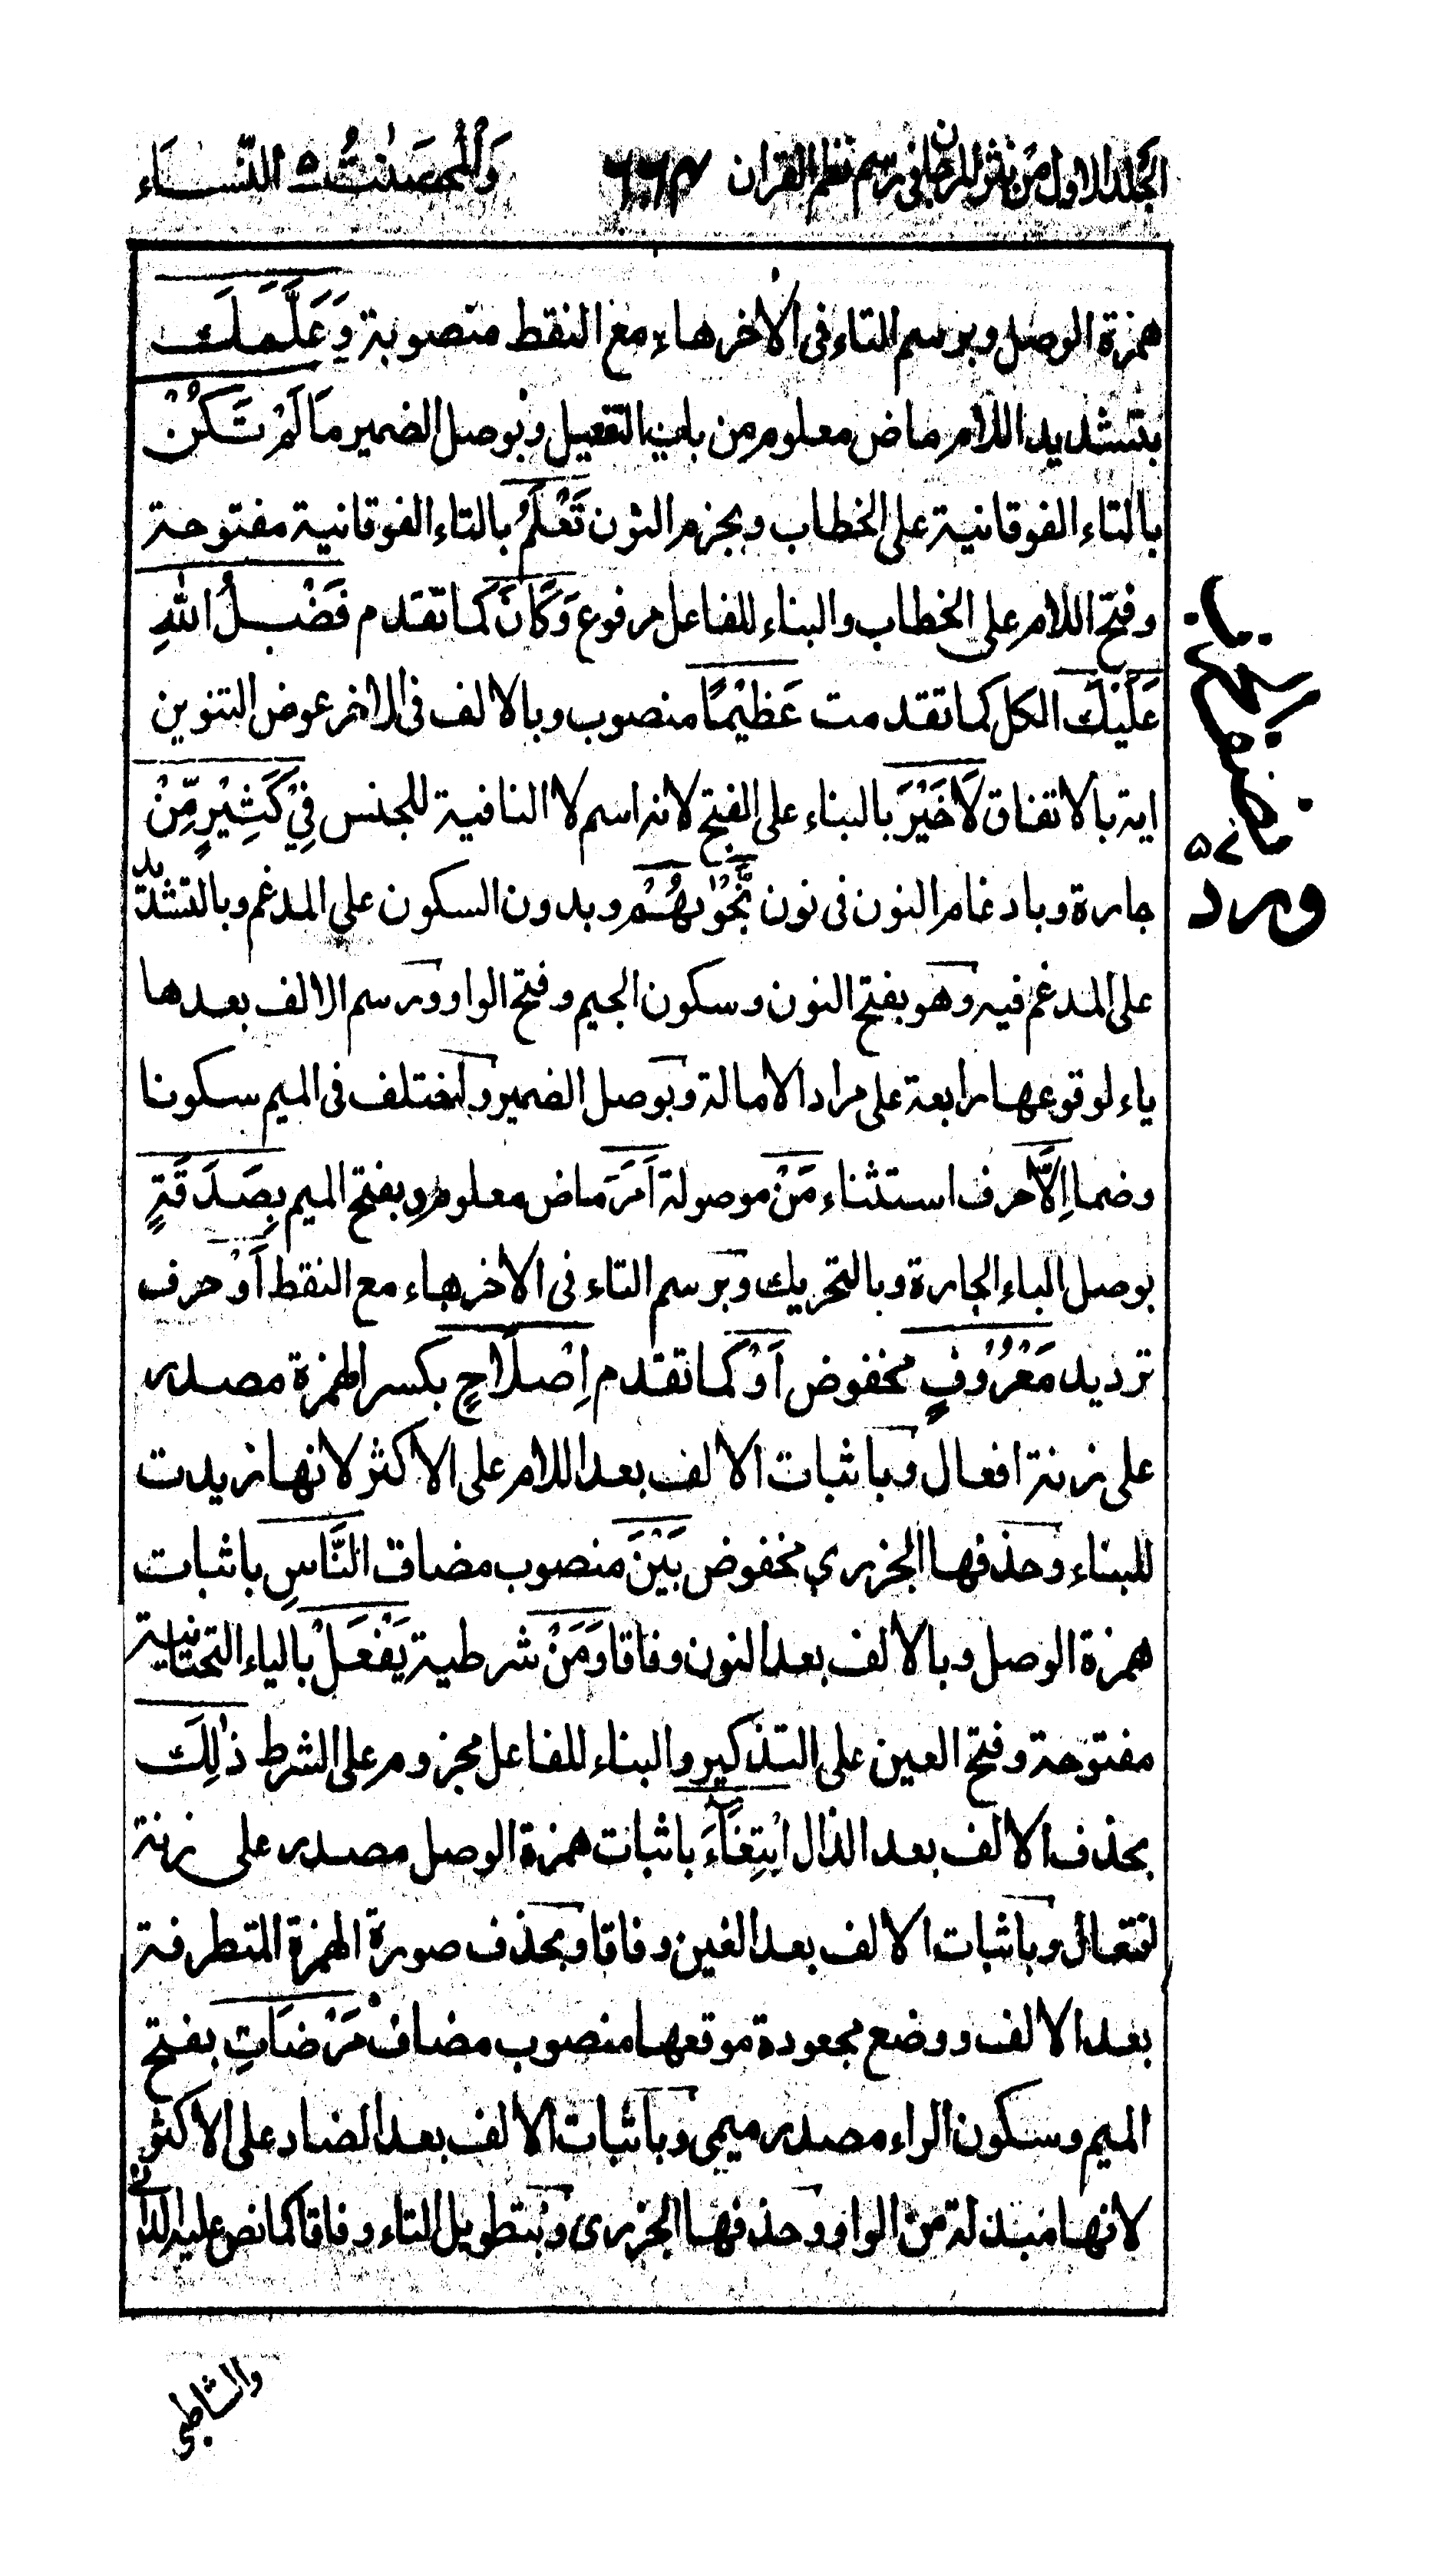 المجلد الاول من نثر المرجان فى رسم نظم القران ٦٦٤ والمحصنت ٥ النساء
همزة الوصل وبرسم التاء فى الاخر هاء مع النقط منصوبة وَعَلَّمَكَ
بتشديد اللام ماض معلوم من باب التفعيل وبوصل الضمير مَا لَمْ تَكُنْ
بالتاء الفوقانية على الخطاب وبجزم النون تَعْلَمُ بالتاء الفوقانية مفتوحة
وفتح اللام على الخطاب والبناء للفاعل مرفوع وَكَانَ كما تقدم فَضْلُ اللّٰهِ
عَلَيْكَ الكل كما تقدمت عَظِيْمًا منصوب وبالالف فى الاخر عوض التنوين
اية بالاتفاق لَاخَيْرَ بالبناء على الفتح لانه اسم لا النافية للجنس فِيْ كَثِيْرٍ مِّنْ
جارة وبادغام النون فى نون نَّجْوٰىهُمْ وبدون السكون على المدغم وبالتشديد
على المدغم فيه وهو بفتح النون وسكون الجيم وفتح الواو ورسم الالف بعدها
ياء لوقوعها رابعة على مراد الامالة وبوصل الضمير واختلف فى الميم سكونا
وضما اِلَّا حرف استثناء مَنْ موصولة اَمَرَ ماض معلوم وبفتح الميم بِصَدَقَةٍ
بوصل الباء الجارة وبالتحريك وبرسم التاء فى الاخر هاء مع النقط اَوْ حرف
ترديد مَعْرُوْفٍ مخفوض اَوْ كما تقدم اِصْلَاحٍ بكسر الهمزة مصدر
على زنة افعال وباثبات الالف بعد اللام على الاكثر لانها زيدت
للبناء وحذفها الجزري مخفوض بَيْنَ منصوب مضاف النَّاسِ باثبات
همزة الوصل وبالالف بعد النون وفاقا وَمَنْ شرطية يَفْعَلْ بالياء التحتانية
مفتوحة وفتح العين على التذكير والبناء للفاعل مجزوم على الشرط ذٰلِكَ
بحذف الالف بعد الذال ابْتِغَآءَ باثبات همزة الوصل مصدر على زنة
افتعال وباثبات الالف بعد الغين وفاقا وبحذف صورة الهمزة المتطرفة
بعد الالف ووضع مجعودة موقعها منصوب مضاف مَرْضَاتِ بفتح
الميم وسكون الراء مصدر ميمي وباثبات الالف بعد الضاد على الاكثر
لانها مبدلة من الواو وحذفها الجزرى وبتطويل التاء وفاقا كما نص عليه الدانى
والشاطبي